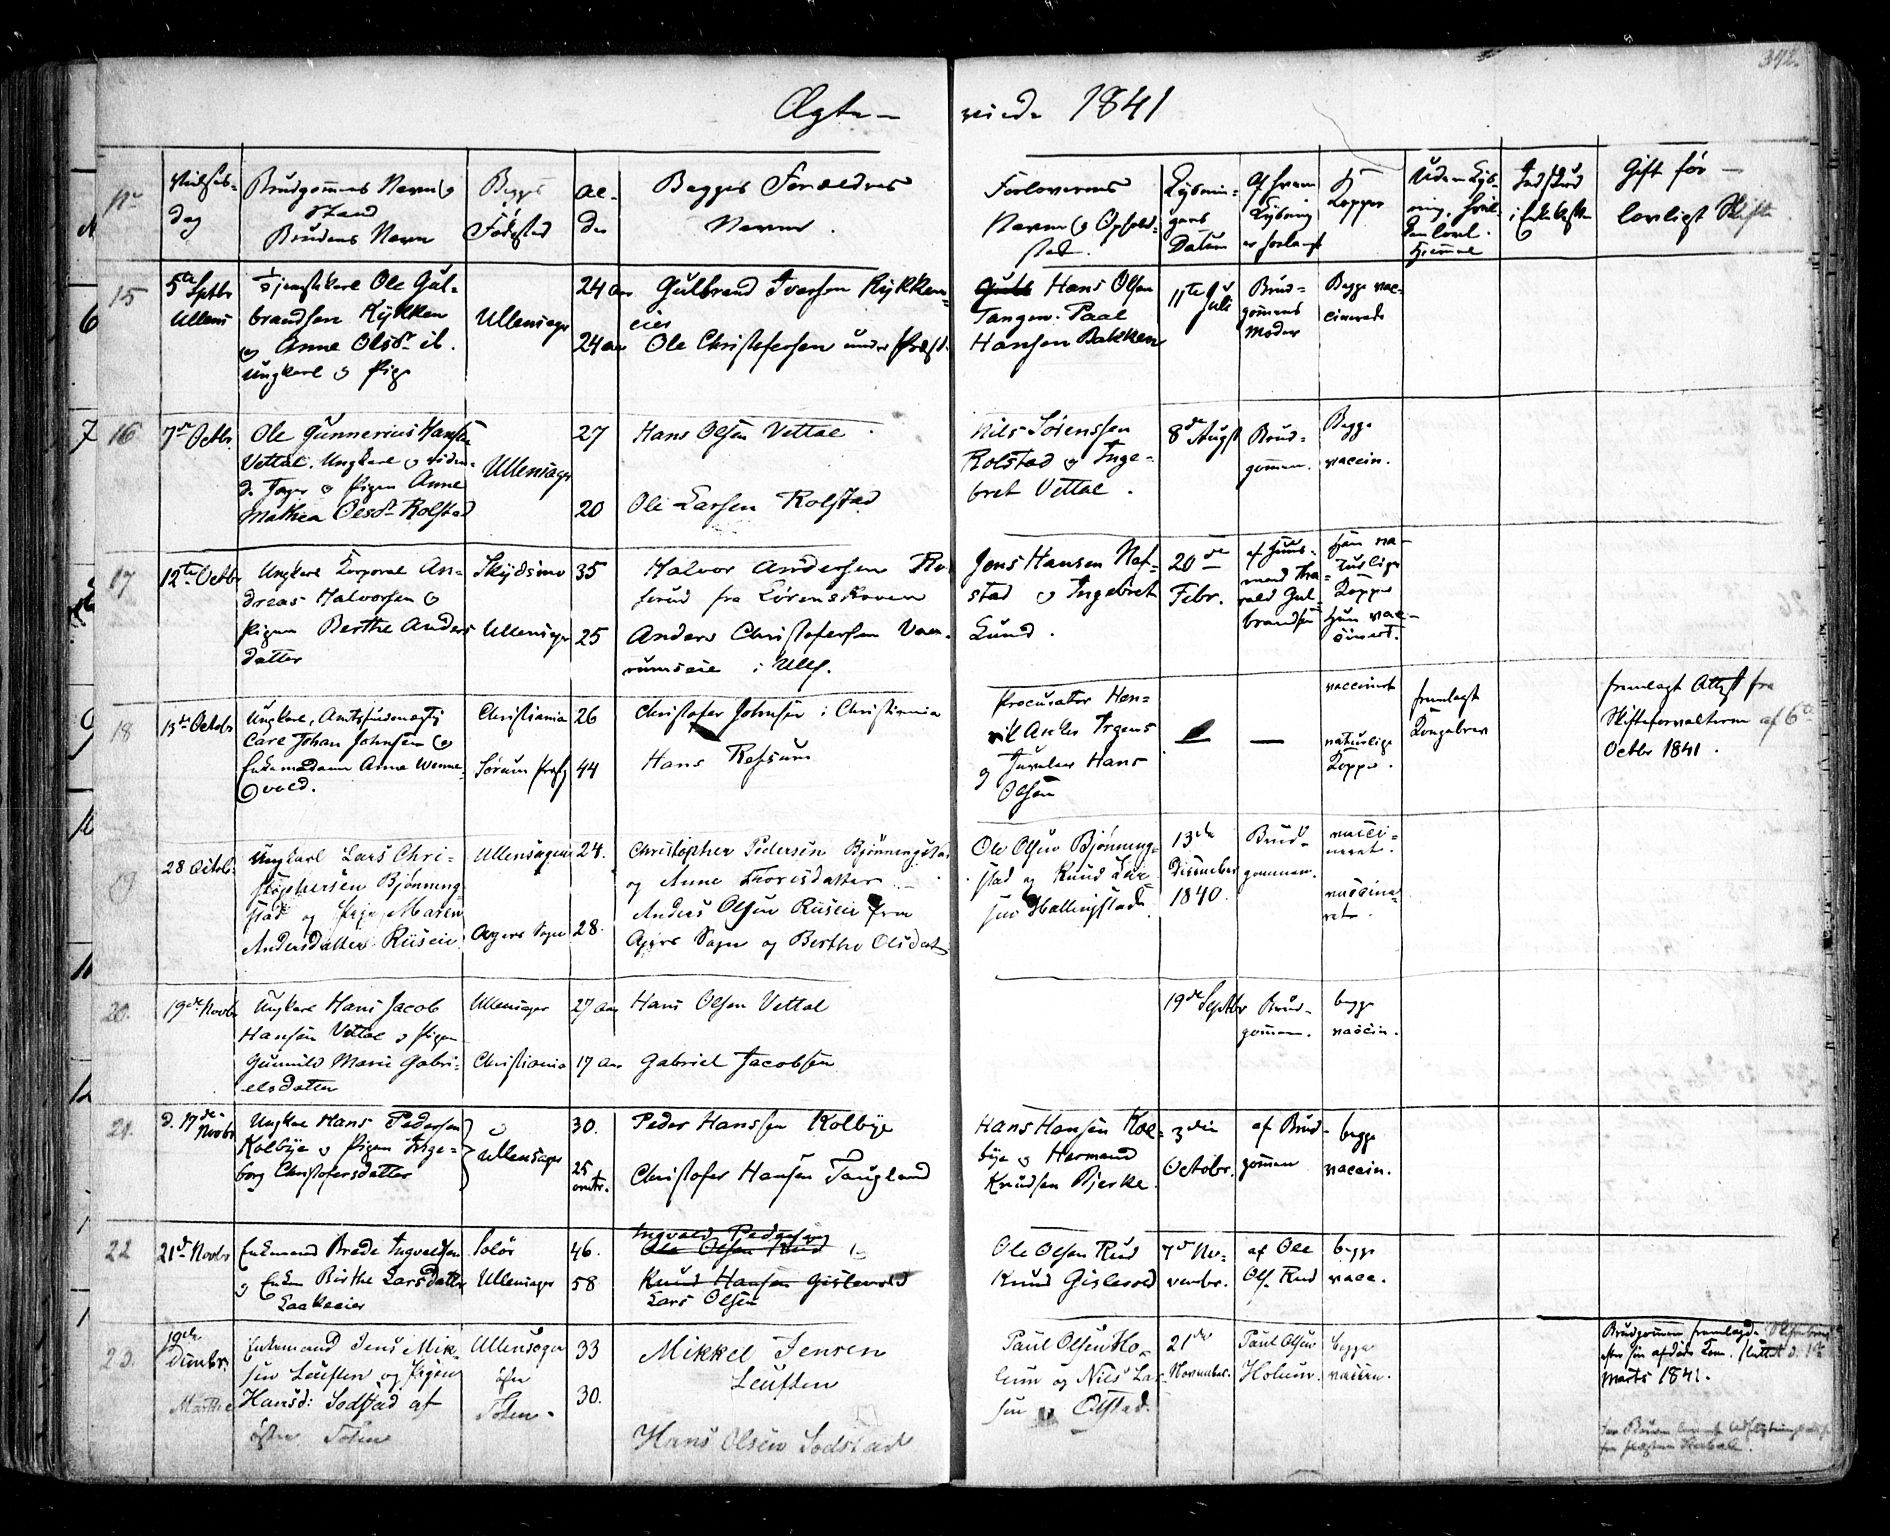 342.
Ægte-
viede 1841
No
Vielses-
dag
Brudgommens Navn og
Stand
Brudens Navn
Begges
Fødested
Al-
der
Begges Forældres
Navne.
Forlovernes
Navn og Opholds-
sted.
Lysnin-
gens
Datum
Af hvem
Lysning
er forlangt
Kopper
Uden Lys-
ning, hvil-
ken lovl.
Hjemmel
Indskud
i Enkekassen
Gift før —
lovligt Skifte
15
5te Septbr
Ullens
Tjenestkarl Ole Gul-
brandsen Kykken
og Anne Olsdr ib.
Ungkarl og Pige
Ullensager
24 Aar
24 Aar
Gulbrand Iversen Kykken-
eier
Ole Christofersen under Præst.
Gulb Hans Olsen
Tangen. Paal
Hansen Bakken
11te Juli
Brud-
gommens
Moder
Begge vac-
cinerede
16
7de Octbr
Ole Gunnerius Hansen
Vettal. Ungkarl og
Pigen Anne
Mathea Olsdr Rolstad
Ullensager
27
20
Hans Olsen Vettal
Ole Larsen Rolstad
Nils Sørenssen
Rolstad og Inge-
bret Vettal.
8de Augst
Brud-
gommen.
Begge
vaccin.
17
12te Octbr
Ungkarl Corporal An-
dreas Halvorsen og
Pigen Berthe Anders
datter
Skydsmo
Ullensager
35
25
Halvor Andersen
fra Lørenskoven
Anders Christofersen
i Ulls.
Jens Hansen Naf-
stad og Ingebret
Lund.
20de
Febr.
af Huus-
mand
Gul-
brandsen
Han na-
turlige
Kopper
Hun vac-
cineret.
18
13de Octobr
Ungkarl, Amtsfuldmægtig
Carl Johan Johnsen og
Enkemadame Anna Wenne-
vold.
Christiania
Sørum Præstg
26
44
Christofer Johnsen i Christiania
Hans Refsum
Procurator Hen-
rik Anker Irgens
og Juveleer Hans
Olsen
—
—
vaccineret
naturlige
Kopper.
fremlagt
Kongebrev
fremlagt Attest fra
Skifteforvalteren af 6te
Octbr 1841.
19
28 Octob.
Ungkarl Lars Chri-
stophersen Bjønning-
stad og Pige Maren
Andersdatter Riiseie
Ullensager
Agers Sogn
24.
28.
Christopher Pedersen Bjønningstad
og Anne Thoresdatter
Anders Olsen Riiseie fra
Agers Sogn og Berthe Olsdat
Ole Olsen Bjønning-
stad og Knud Lar
sen Hallingstad.
13de
December
1840.
Brud-
gommen.
vacci-
neret.
vaccine-
ret.
20.
19de Novbr
Ungkarl Hans Jacob
Hansen Vettal og Pigen
Gunnild Marie Gabri-
elsdatter
Ullensager
Christiania
27 Aar
17 Aar
Hans Olsen Vettal
Gabriel Jacobsen
19de Septbr
Brud-
gommen.
begge
vaccin.
21.
d. 17de
Novbr
Ungkarl Hans Pedersen
Kolbye og Pigen Inge-
borg Christofersdatter
Ullensager
30.
25
omtr.
Peder Hanssen Kolbye
Christofer Hansen Taugland
Hans Hansen Kol-
bye og Hermand
Knudsen Bjerke.
3die
Octobr.
af Brud-
gommen
begge
vaccin.
22
21de Novbr
Enkemand Brede Ingvaldsen
og Enken Birthe Larsdatter
Laakeeier
Solør
Ullensager
46.
58
Ingvald Pedersen
Ole Olsen Rud
Knud Hansen Gislevold
Lars Olsen
Ole Olsen Rud
Knud Gislevold
7de No-
vembr.
af Ole
Ols. Rud
begge
vacc.
23.
19de
Decmbr
Enkemand Jens Mik-
sen Leuften og Pigen
Marthe Hansd: Sodstad af
østre Toten
Ullensager
østre
Toten.
33
30.
Mikkel Jensen
Leuften
Hans Olsen Sodstad
Paul Olsen Ho-
lum og Niels Lar
sen Olstad.
21de
November.
Paul Olsen
Holum.
begge
vaccin.
Brudgommen fremlagde
efter sin afdøde Kone. sluttet d. 1ste
Marts 1841.